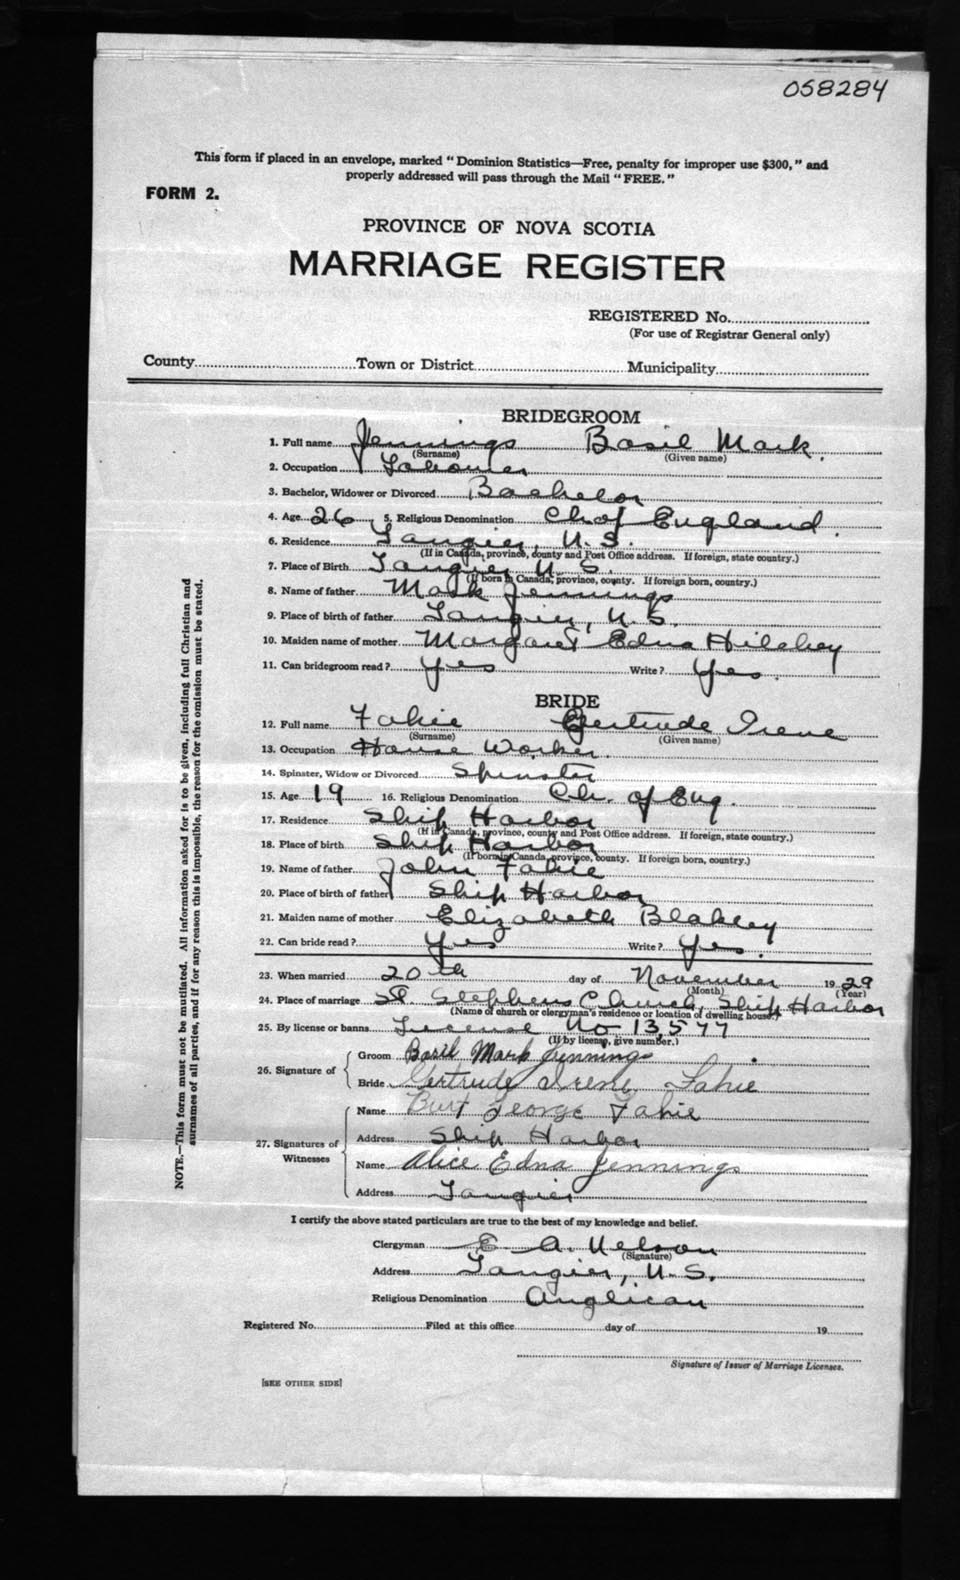 058284
This form if placed in an envelope, marked "Dominion Statistics—Free, penalty for improper use $300," and
properly addressed will pass through the Mail "FREE."
FORM 2.
PROVINCE OF NOVA SCOTIA
MARRIAGE REGISTER
REGISTERED No.
(For use of Registrar General only)
County Town or District Municipality
BRIDEGROOM
1. Full name Jennings Basil Mark.
(Surname) (Given name)
2. Occupation Labourer
3. Bachelor, Widower or Divorced Bachelor
4. Age 26 5. Religious Denomination Ch of England.
6. Residence Tangier, N.S.
(If in Canada, province, county and Post Office address. If foreign, state country.)
7. Place of Birth Tangier N.S.
(If born in Canada, province, county. If foreign born, country.)
8. Name of father Mark Jennings
9. Place of birth of father Tangier, N.S.
10. Maiden name of mother Margaret Edna Hilchey
11. Can bridegroom read? yes Write? yes.
BRIDE
12. Full name Fahie Gertrude Irene
(Surname) (Given name)
13. Occupation House Worker.
14. Spinster, Widow or Divorced Spinster
15. Age 19 16. Religious Denomination Ch. of Eng.
17. Residence Ship Harbor
(If in Canada, province, county and Post Office address. If foreign, state country.)
18. Place of birth Ship Harbor
(If born in Canada, province, county. If foreign born, country.)
19. Name of father John Fahie
20. Place of birth of father Ship Harbor
21. Maiden name of mother Elizabeth Blakley
22. Can bride read? yes Write? yes.
23. When married 20th day of November 1929
(Month) (Year)
24. Place of marriage St Stephens Church, Ship Harbor
(Name of church or clergyman's residence or location of dwelling house.)
25. By license or banns License No 13,577
(If by license, give number.)
26. Signature of Groom Basil Mark Jennings
Bride Gertrude Irene Fahie
27. Signatures of Witnesses Name Burt George Fahie
Address Ship Harbor
Name Alice Edna Jennings
Address Tangier
I certify the above stated particulars are true to the best of my knowledge and belief.
Clergyman E. A. Nelson
(Signature)
Address Tangier, N.S.
Religious Denomination Anglican
Registered No. Filed at this office day of 19
Signature of Issuer of Marriage Licenses.
[SEE OTHER SIDE]
NOTE.—This form must not be mutilated. All information asked for is to be given, including full Christian and
surnames of all parties, and if for any reason this is impossible, the reason for the omission must be stated.